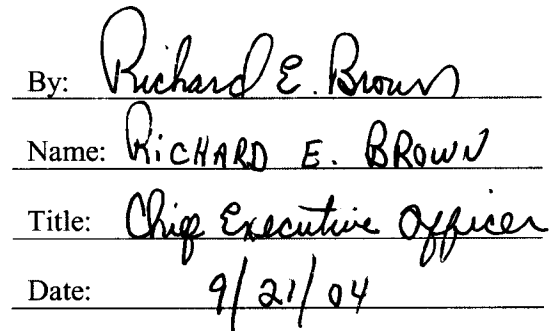 By: Richard E. Brown
Name: RICHARD E. BROWN
Title: Chief Executive Officer
Date: 9/21/04